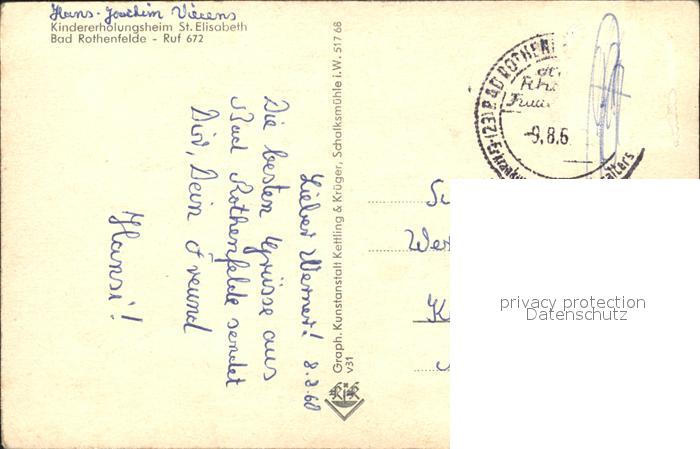 Hans-Joachim Vierens
Kindererholungsheim St. Elisabeth
Bad Rothenfelde - Ruf 672
Lieber Werner! 8.8.60
Die besten Grüsse aus
Bad Rothenfelde sendet
Dir, Dein Freund
Hansi!
Graph. Kunstanstalt Kettling & Krüger, Schalksmühle i.W. 517 68
V31
K&K
(23) BAD ROTHENF
-9.8.6
Wer
K
privacy protection
Datenschutz